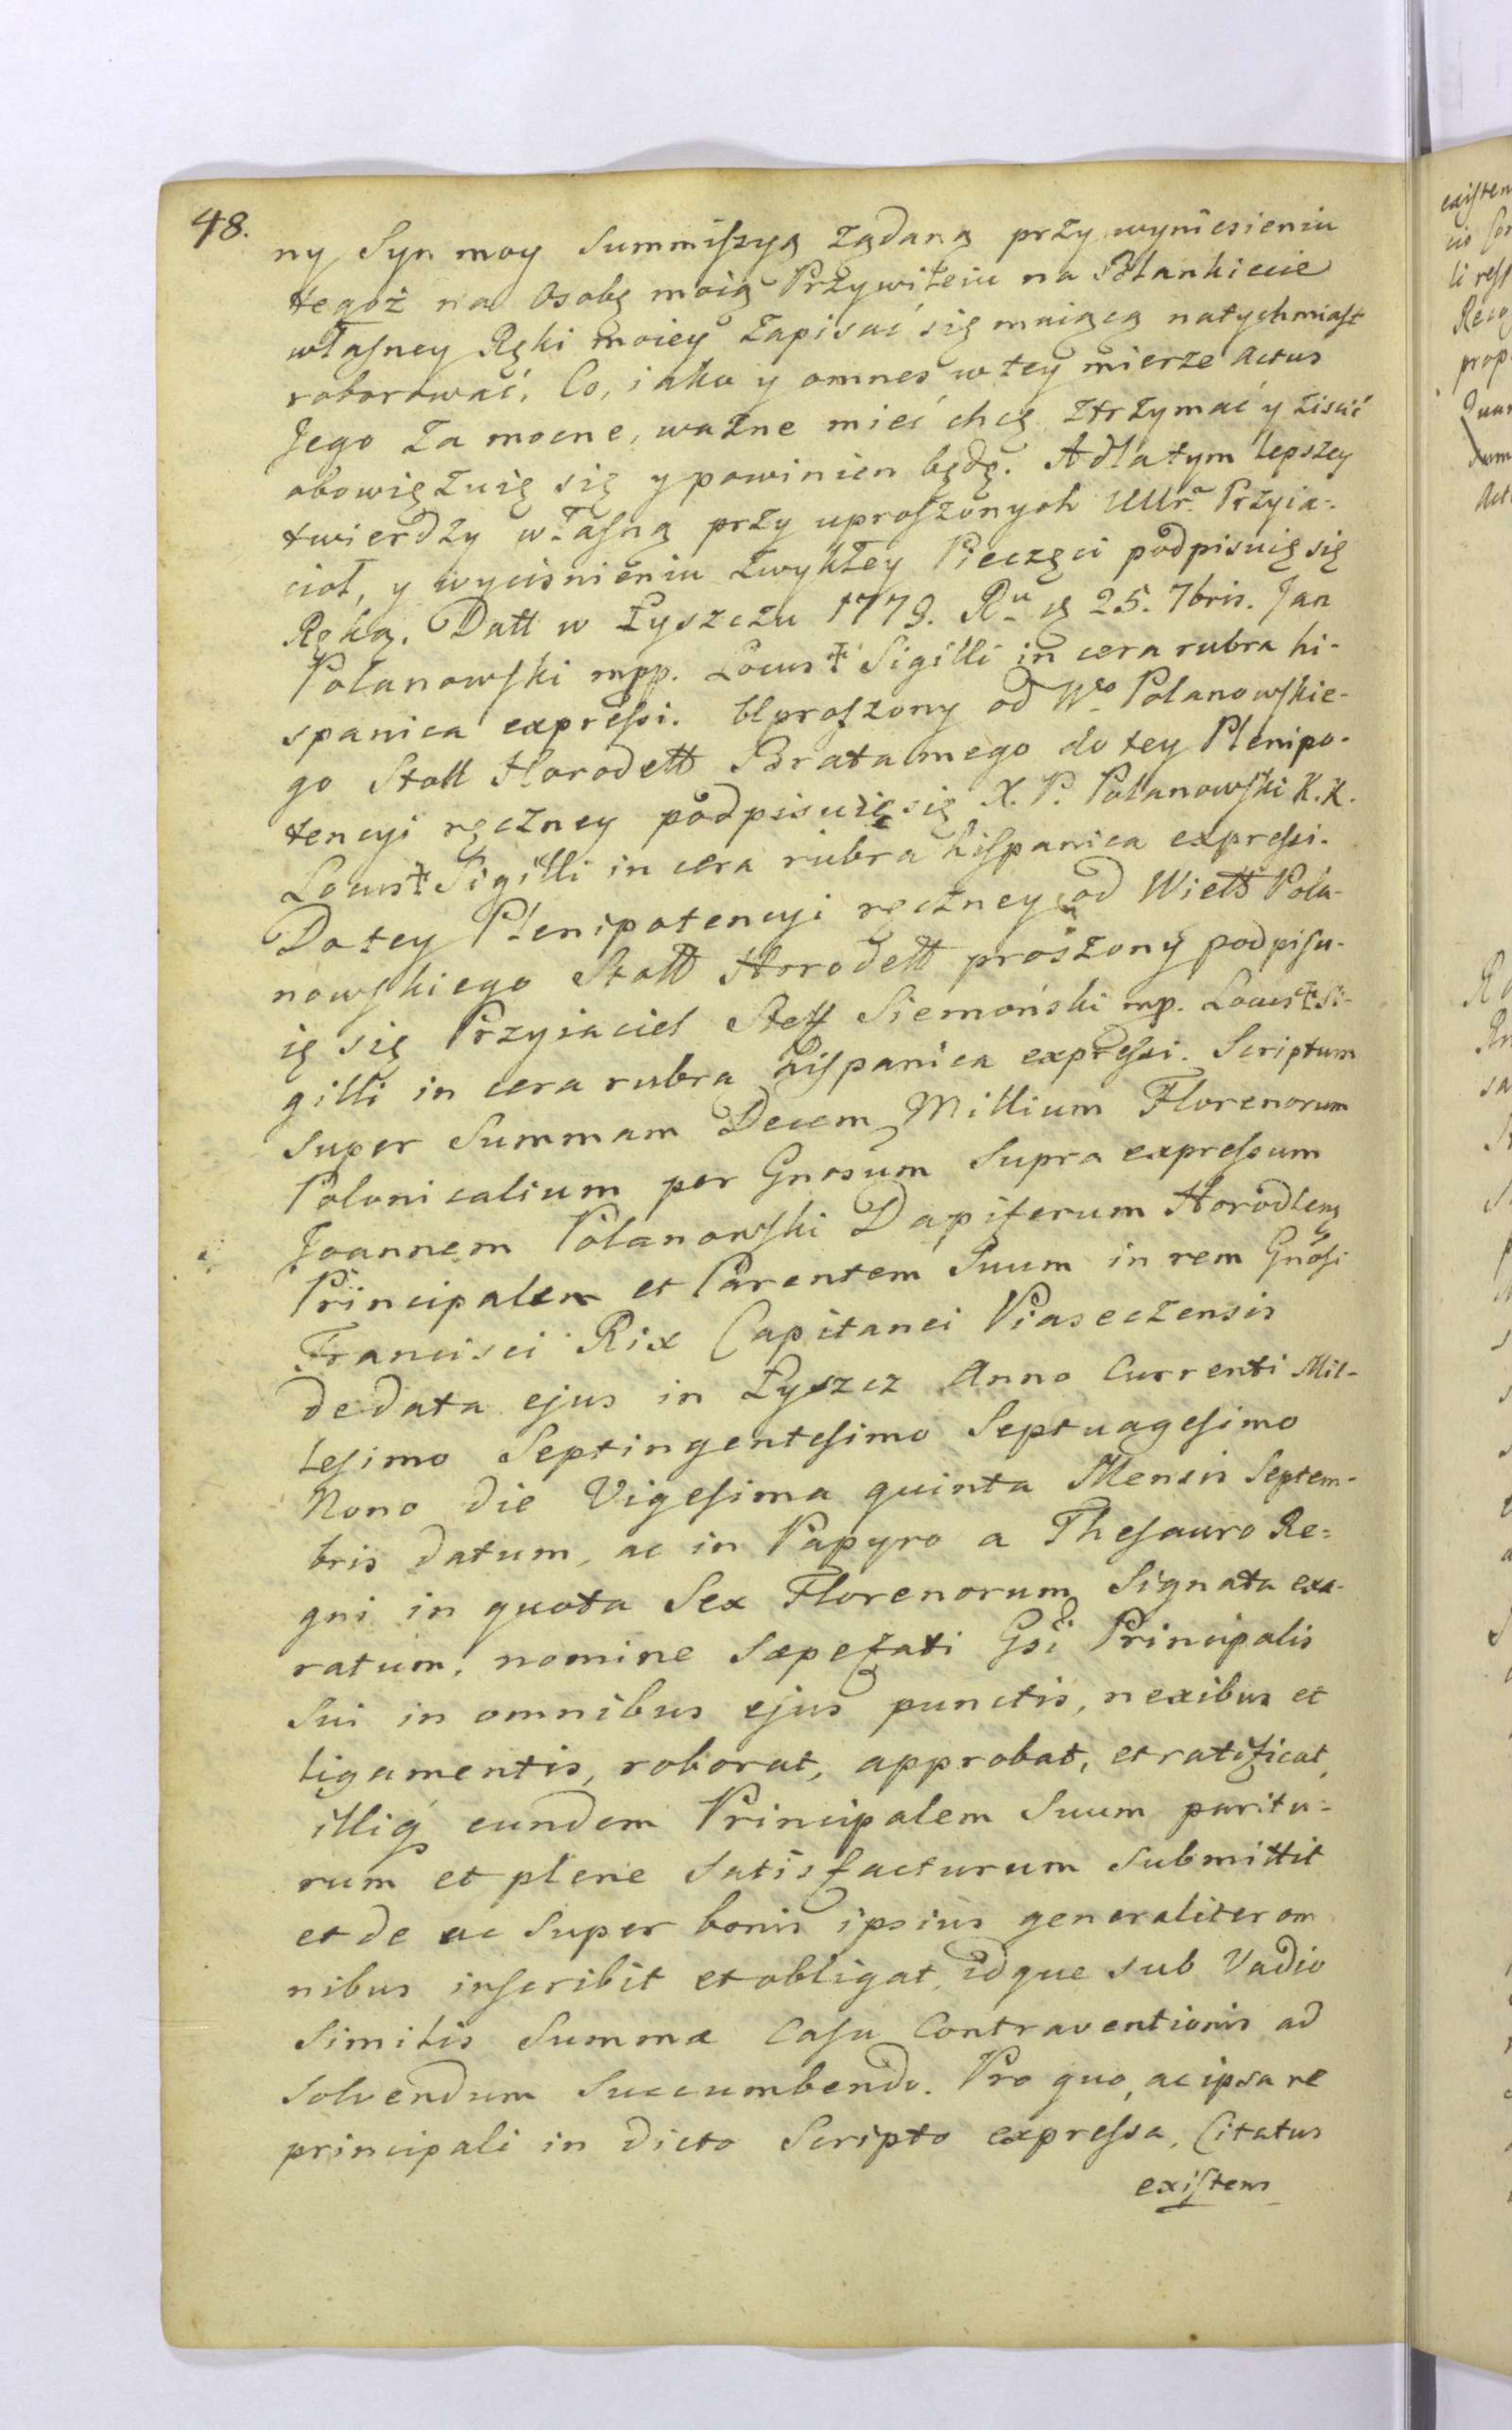 48.
ny Syn moy Summiſzyą Żądaną przy wyniesieniu
tegoż na Osobę moią Przywileiu na Blankiecie
właſney Ręki moiey Zapisać się maiącą natychmiaſt
roborować. Co, iako y omnes w tey mierze Actus
Jego Za mocne, ważne mieć chcę ztrzymać y ziścić
obowięzuię się y powinien będę. A dla tym lepszey
twierdzy właſną przy uproſzonych Przyia-
ciół, y wyciśnieniu zwykłey Pieczęci podpisuię się
Ręką. Datt w Łyszczu 1779. Ru d 25. 7bris. Jan
Polanowſki mpp. Locus ‡ Sigilli in cera rubra hi-
spanica expreſsi. Uproſzony od Wgo Polanowſkie-
go Stoll Horodell Brata mego do tey Plenipo-
tencyi ręczney podpisuię się X. P. Polanowſki K. K.
Locus ‡ Sigilli in cera rubra hiſpanica expreſsi.
Do tey Plenipotencyi ręczney od Wiell Pola-
nowſkiego Stoll Horodell proszony podpiſu-
ię się Przyiaciel Steff Siemoński mp. Locus ‡ Si-
gilli in cera rubra hiſpanica expreſsi. Scriptum
super Summam Decem Millium Florenorum
Polonicalium per Gnosum Supra expreſsum
Joannem Polanowſki Dapiferum Horodlens
Principalem et Parentem Suum in rem Gnosi
Francisci Rix Capitanei Piaseczensis
de data ejus in Łyszcz Anno Currenti Mil-
leſimo Septingenteſimo Septuageſimo
Nono die Vigeſima quinta Mensis Septem-
bris datum, ac in Papyro a Theſauro Re-
gni in quota Sex Florenorum Signata exa-
ratum, nomine Sæpefati Gsi Principalis
Sui in omnibus ejus punctis, nexibus et
ligamentis, roborat, approbat, et ratificat,
illiq eundem Principalem Suum paritu-
rum et plene Satisfacturum Submittit
et de ac Super bonis ipsius generaliter om
nibus inſcribit et obligat, idque sub Vadio
Similis Summæ Caſu Contraventionis ad
Solvendum Succumbendo. Pro quo, ac ipsa re
principali in dicto Scripto expreſsa, Citatus
exiſtens